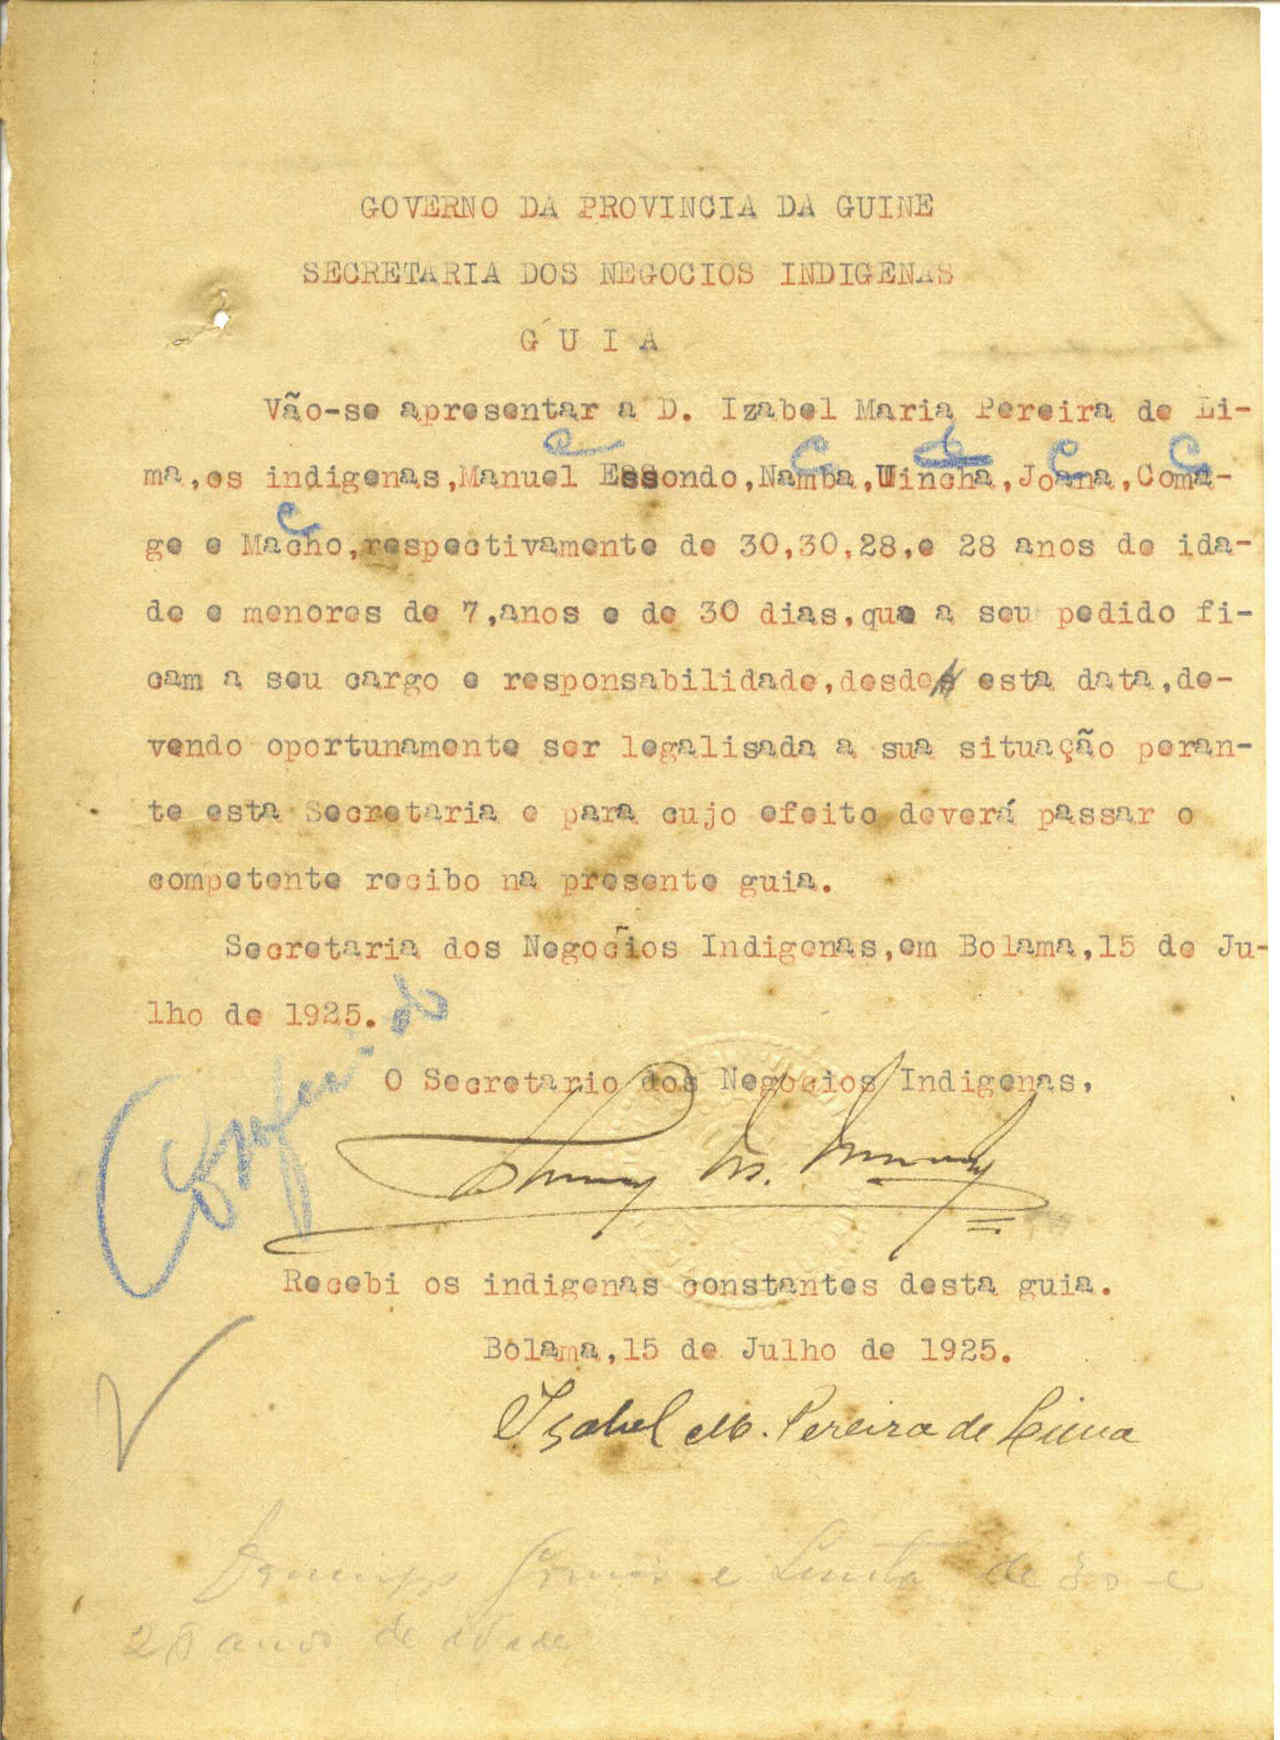 GOVERNO DA PROVINCIA DA GUINE
SECRETARIA DOS NEGOCIOS INDIGENAS
G U I A
Vão-se apresentar a D. Izabel Maria Pereira de Li-
ma,os indigenas,Manuel Essondo,Namba,Uincha,Joana,Coma-
ge e Macho,respectivamente de 30,30,28,e 28 anos de ida-
de e menores de 7,anos e de 30 dias,que a seu pedido fi-
cam a seu cargo e responsabilidade,desde esta data,de-
vendo oportunamente ser legalisada a sua situação peran-
te esta Secretaria e para cujo efeito deverá passar o
competente recibo na presente guia.
Secretaria dos Negocios Indigenas,em Bolama,15 de Ju-
lho de 1925.
O Secretario dos Negocios Indigenas,
Recebi os indigenas constantes desta guia.
Bolama,15 de Julho de 1925.
Isabel M. Pereira de Lima
e de 30 e
28 anos de idade